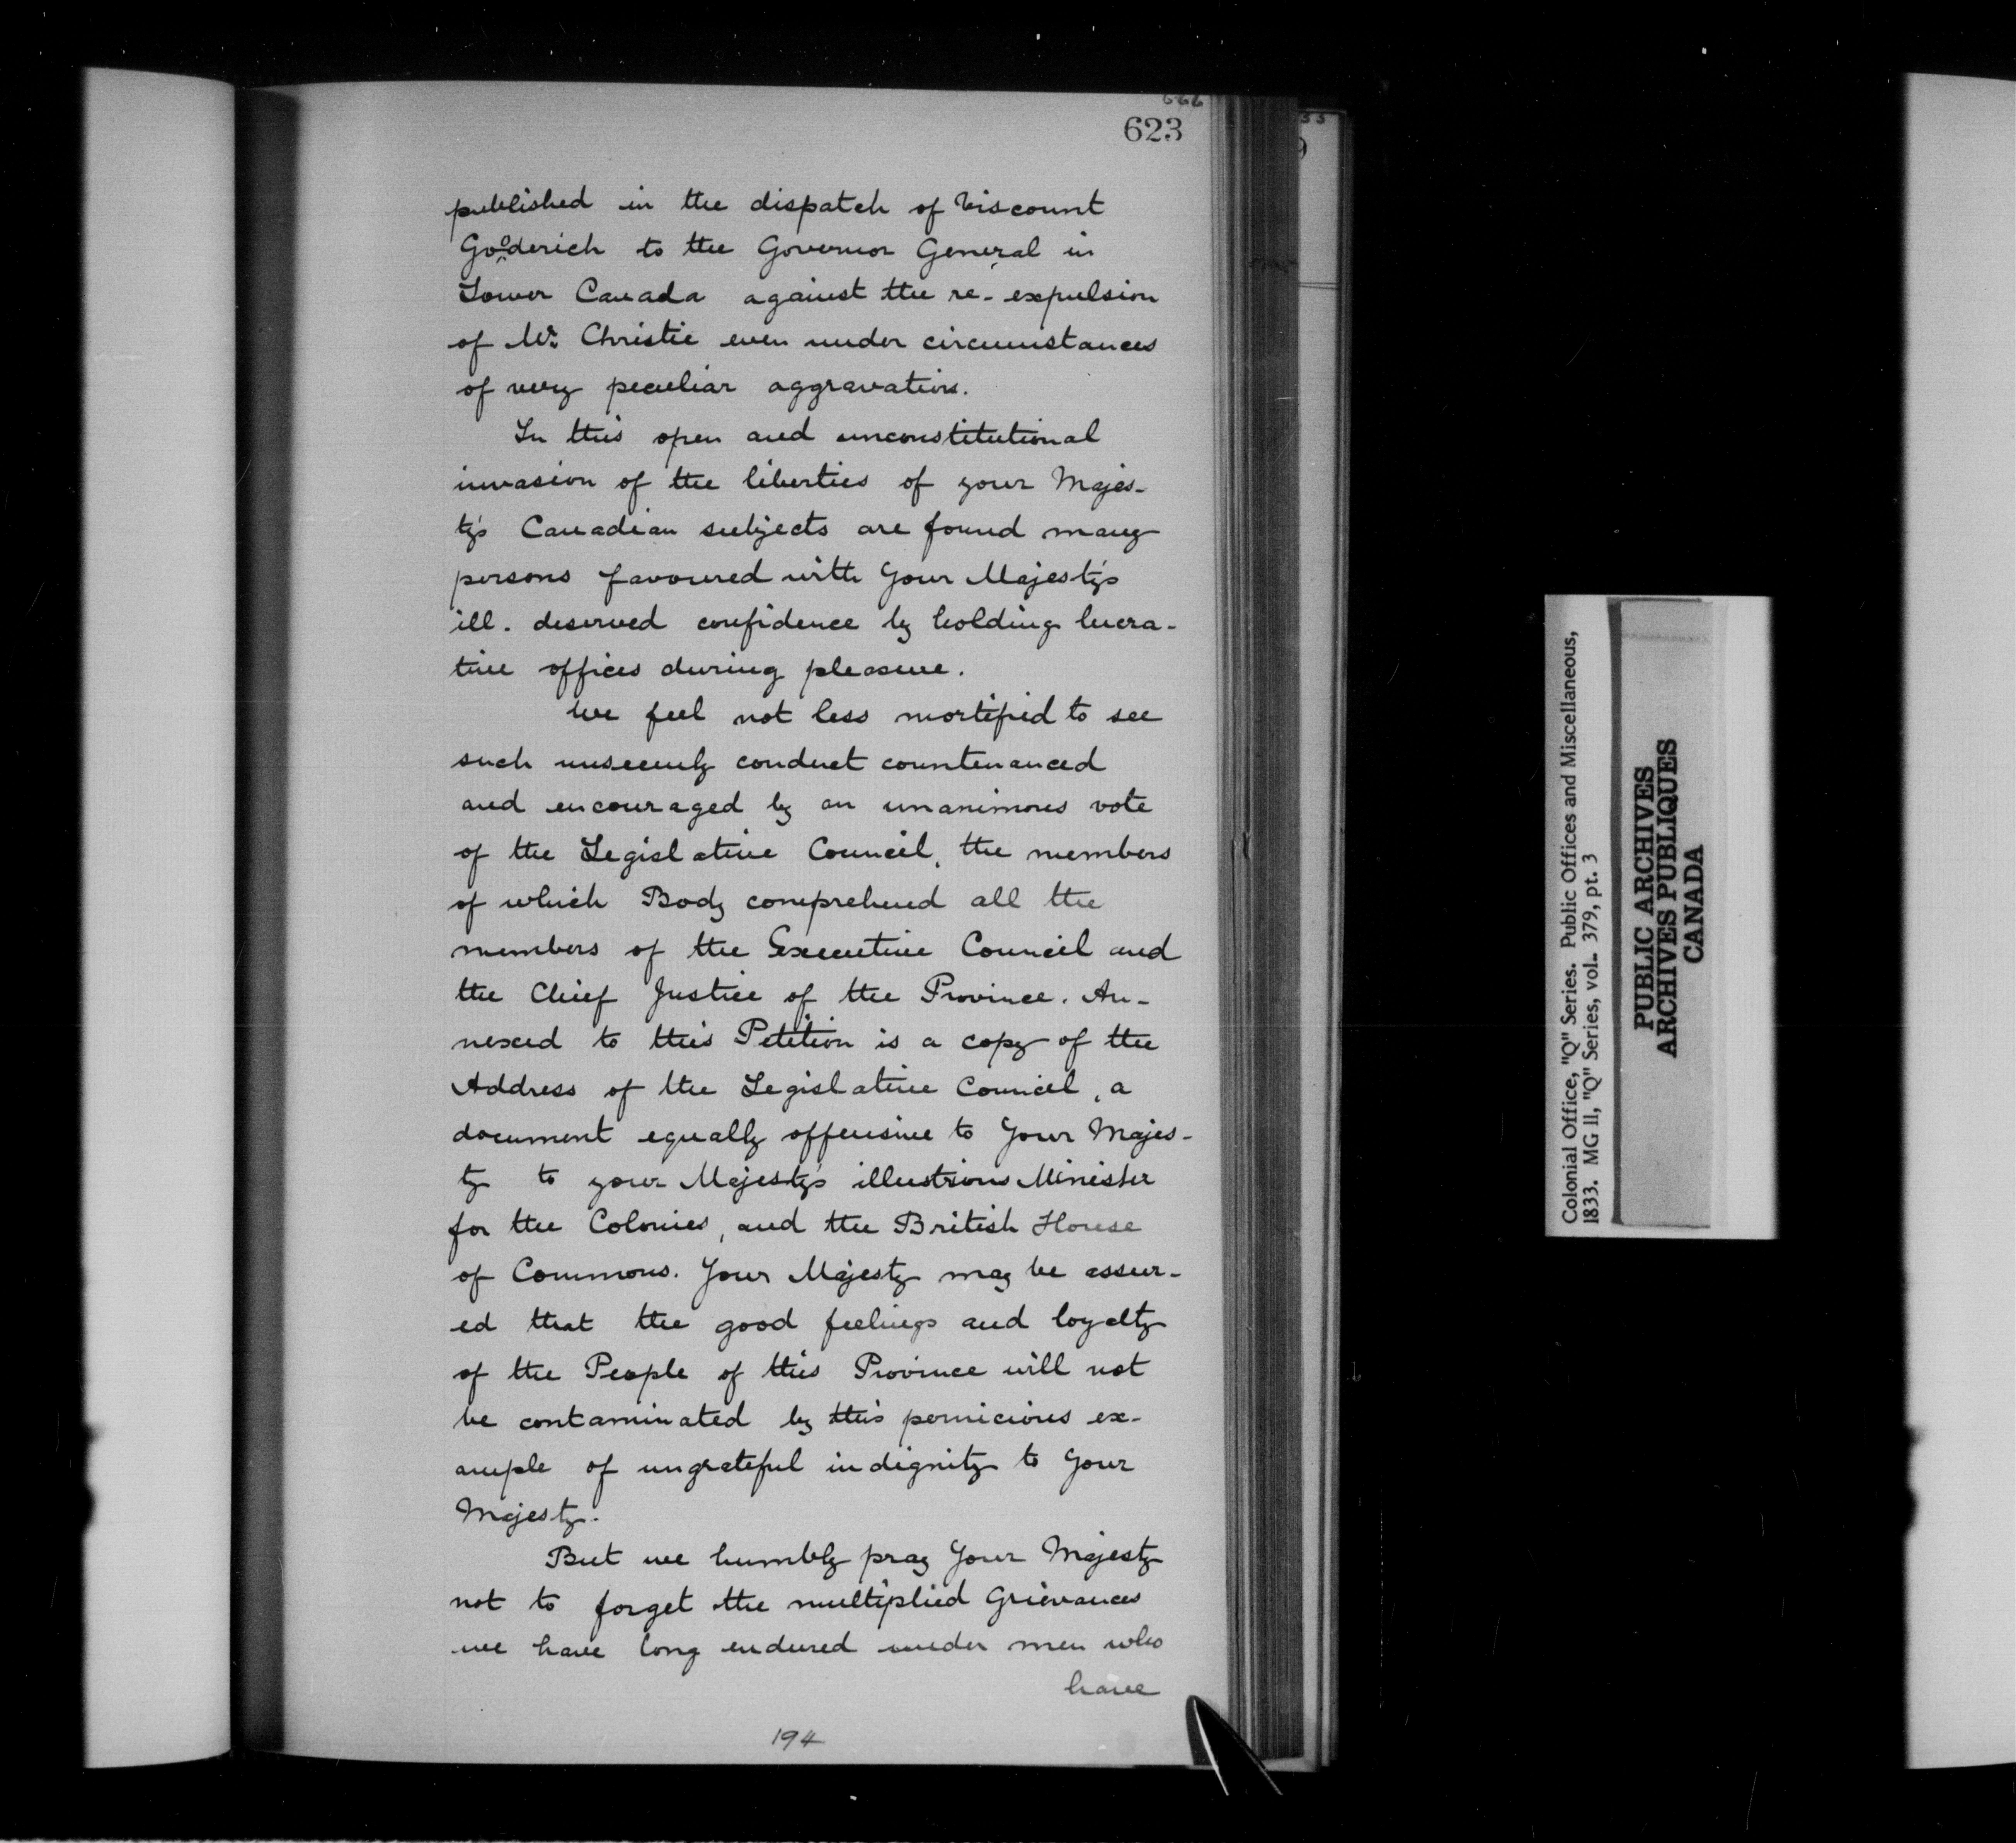 623
published in the dispatch of Viscount
Gooderich to the Governor General in
Lower Canada against the re-expulsion
of Mr. Christie even under circumstances
of very peculiar aggravation.
In this open and unconstitutional
invasion of the liberties of your Majes-
ty's Canadian subjects are found many
persons favoured with Your Majesty's
ill-deserved confidence by holding lucra-
tive offices during pleasure.
We feel not less mortified to see
such unseemly conduct countenanced
and encouraged by an unanimous vote
of the Legislative Council, the members
of which Body comprehend all the
members of the Executive Council and
the Chief Justice of the Province. An-
nexed to this Petition is a copy of the
Address of the Legislative Council, a
document equally offensive to Your Majes-
ty to your Majesty's illustrious Minister
for the Colonies, and the British House
of Commons. Your Majesty may be assur-
ed that the good feelings and loyalty
of the People of this Province will not
be contaminated by this pernicious ex-
ample of ungrateful indignity to Your
Majesty.
But we humbly pray Your Majesty
not to forget the multiplied Grievances
we have long endured under men who
have
194
Colonial Office, "Q" Series. Public Offices and Miscellaneous,
1833. MG 11, "Q" Series, vol. 379, pt. 3
PUBLIC ARCHIVES
ARCHIVES PUBLIQUES
CANADA